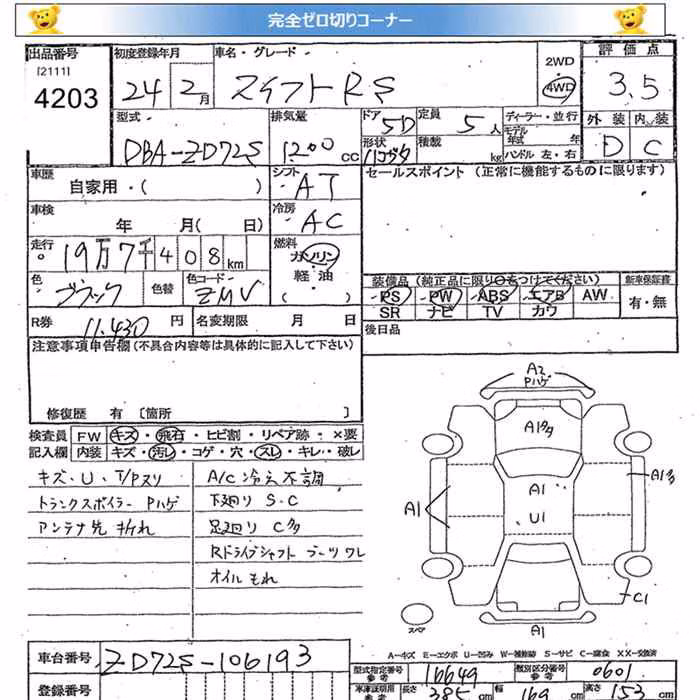 完全ゼロ切りコーナー
出品番号
[2111]
4203
初度登録年月
24 2月
車名・グレード
スイフトRS
2WD
4WD
評価点
3.5
型式
DBA-ZD72S
排気量
1200 cc
ドア
5D
形状
定員
5人
積載
kg
ディーラー・並行
モデル年式 年
ハンドル 左・右
外装 内装
D C
車歴
自家用・( )
シフト
AT
セールスポイント (正常に機能するものに限ります)
車検
年 月( 日)
冷房
AC
走行
19万7千408km
燃料
ガソリン
軽油
( )
色
ブラック
色替
色コード
ZMV
装備品 (純正品に限り○をつけてください)
PS PW ABS エアB AW
SR ナビ TV カワ
新車保証書
有・無
R券
11,430円
名変期限 月 日
後日品
注意事項申告欄(不具合内容等は具体的に記入して下さい)
修復歴 有 [箇所 ]
検査員 FW キズ・飛石・ヒビ割・リペア跡・×要
記入欄 内装 キズ・汚レ・コゲ・穴・スレ・キレ・破レ
キズ・U・T/Pスリ
トランクスポイラー Pハゲ
アンテナ先 折れ
A/C 冷え不調
下廻り S・C
足廻り C多
Rドライブシャフト ブーツワレ
オイルもれ
A2
Pハゲ
A1多
A1
U1
A1
A1多
C1
A1
スペア
A-キズ E-エクボ U-凹み W-補修跡 S-サビ C-腐食 XX-交換済
車台番号
ZD72S-106193
登録番号
型式指定番号
参考
16649
類別区分番号
参考
0601
車庫証明用
参考
長さ
385 cm
幅
169 cm
高さ
153 cm